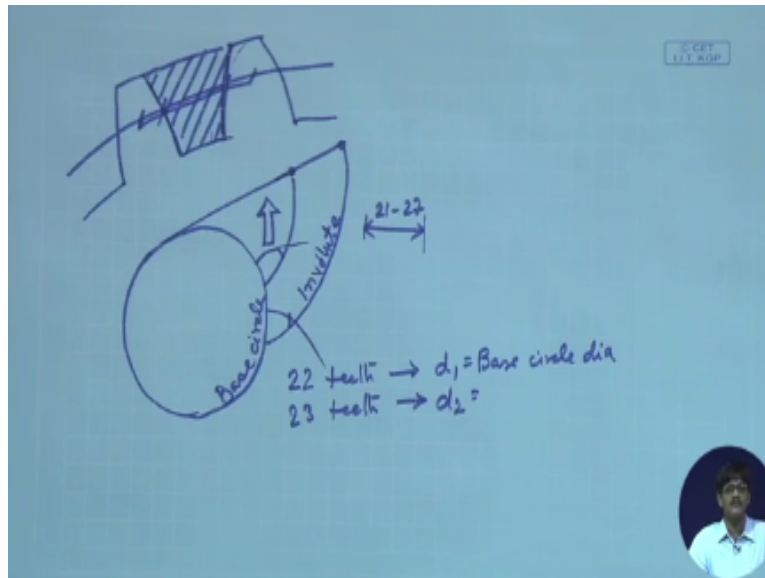 © CET
I.I.T. KGP
21-27
Involute
Base circle
22 teeth → d₁ = Base circle dia
23 teeth → d₂ =